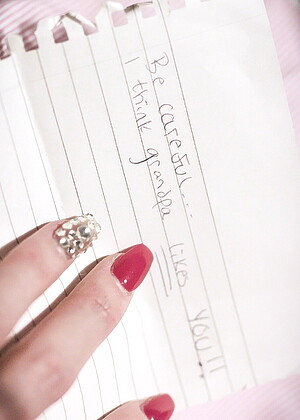 Be careful...
I think grandpa likes YOU!!